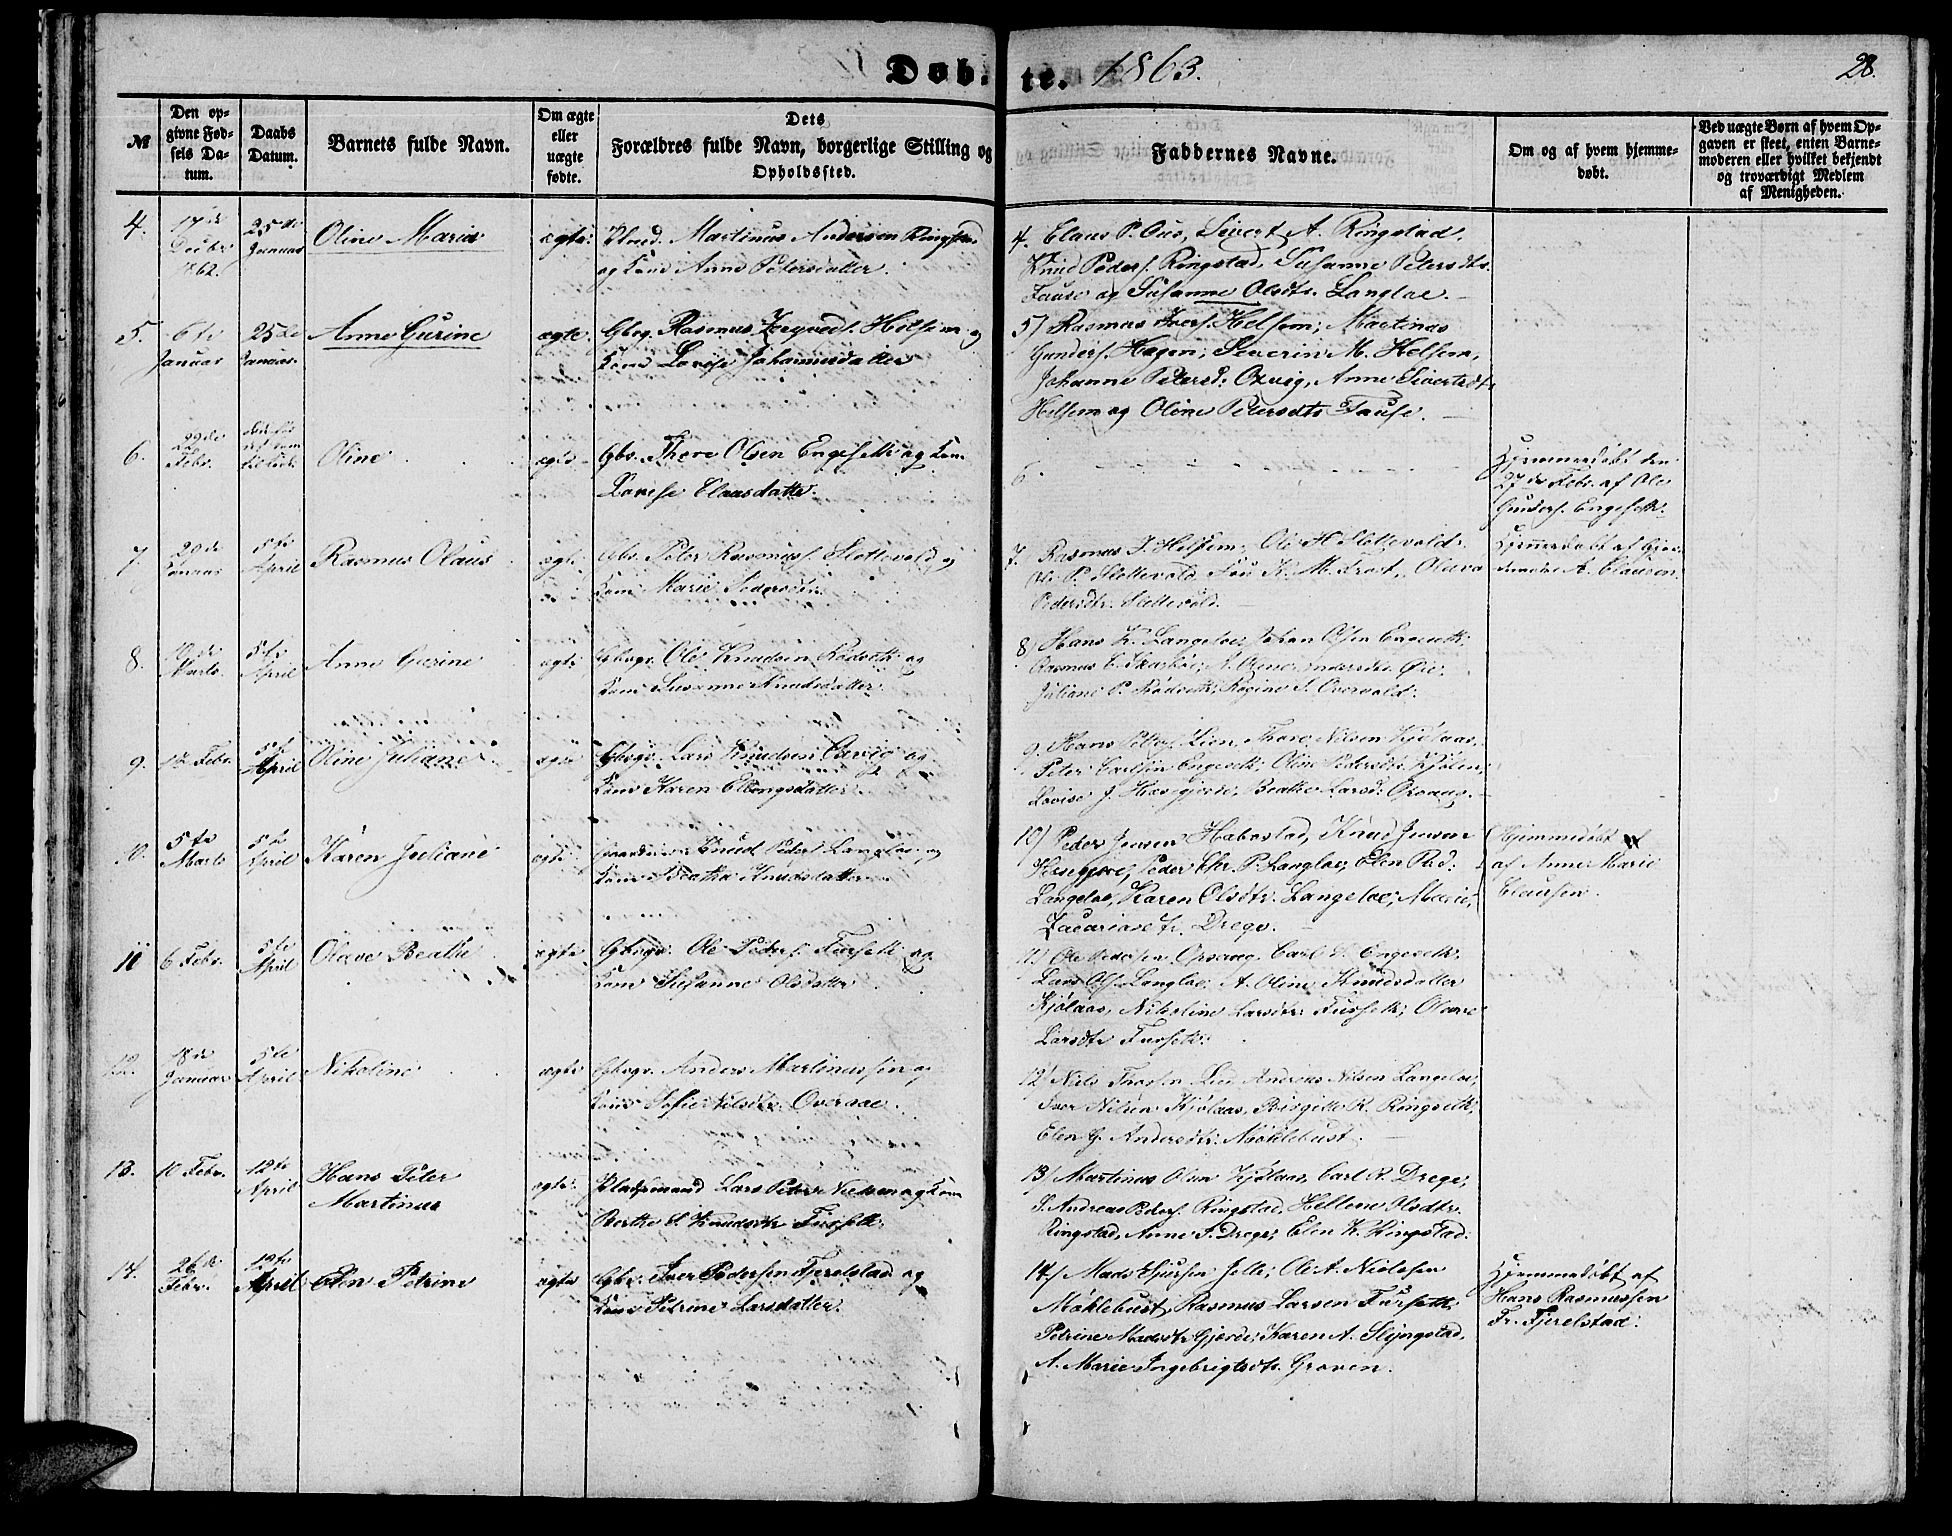 Døb- te. 1863.
28.
№
Den op-
givne Fød-
sels Da-
tum.
Daabs
Datum.
Barnets fulde Navn.
Om ægte
eller
uægte
fødte.
Dets
Forældres fulde Navn, borgerlige Stilling og
Opholdssted.
Faddernes Navne.
Om og af hvem hjemme-
døbt.
Ved uægte Børn af hvem Op-
gaven er skeet, enten Barne-
moderen eller hvilket bekjendt
og troværdigt Medlem
af Menigheden.
4.
17de
Decbr
1862.
25de
Januar
Oline Maria
ægte
Martinus Andersen Ringstad
og Kone Anne Petersdatter.
4. Claus P. Aus, Sivert A. Ringstad,
Knud Peders. Ringstad, Susanne Petersdtr.
Fause og Susanne Olsdtr. Langloe.
5.
6te
Januar
25de
Januar
Anne Gurine
ægte
Gbrg. Rasmus Helsem og
Kone Lovise Johannesdatter
5) Rasmus Ivers. Helsem, Martinus
Gunders. Hagen, Severin M. Helsem,
Johanne Petersd: Oxvig, Anne Sivertsdtr
Helsem og Oline Petersdtr Fause.
6.
22de
Febr.
Oline
ægte
Gbr. Thore Olsen Engeseth og Kone
Lovise Claasdatter.
6
Hjemmedøbt den
27de Febr. af Ole
Gunders. Engeseth.
7.
20de
Januar
5te
April
Rasmus Olaus
ægte
Gbr. Peter Rasmuss. Slettevold og
Kone Marie Pedersdtr.
7. Rasmus I. Helsem, Ole H Slettevold,
Ole P. Slettevold, K. M. Frost, Olava
Pedersdtr. Slettevold.
Hjemmedøbt af Gjor-
demoder A. Clausen.
8.
Marts.
5te
April
Anne Gurine
ægte
Gbrgr. Ole Knudsen Rødseth og
Kone Susanne Knudsdatter
8) Hans K. Langeloe, Johan Olsen Engeseth
Rasmus E. Skarbøe, A. Andersdtr. Øie,
Juliane P. Rødseth, Regine S. Overvold.
9.
Febr.
5te
April
Oline Juliane
ægte
Gbrgr. Lars Knudsen Oxvig og
Kone Karen Ellingsdatter
9. Hans Peters. Lien, Thore Nilsen Kjølaas,
Peter Carlsen Engeseth, Oline Pedersdtr. Kjølen,
Lovise J. Hasegjerde, Beathe Larsd: Orvang.
10.
5te
Marts
5te
April
Karen Juliane
ægte
Knud Peders. Langloe og
Kone Beatha Knudsdatter
10) Peder Jensen Habostad, Knud Jensen
Hasegjere, Peder Chr. P. Langloe, Elen P.d:
Langeloe, Karen Olsdtr. Langeloe, Marie
Zacariasdtr. Drege.
Hjemmedøbt
af Anne Marie
Clausen.
11
6 Febr.
5te
April
Olave Beathe
ægte
Gbrgr. Ole Peders. Furseth og
Kone Susanne Olsdatter
11) Ole Pedersen Orvang, Carl E. Engeseth,
Lars Ols. Langloe, A. Oline Knudsdatter
Kjølaas, Nikoline Larsdtr: Furseth, Olave
Larsdtr Furseth.
12.
18de
Januar
5te
April
Nikoline
ægte
Gbrgr. Anders Martinussen og
Kone Sofie Nilsdtr. Overaae.
12) Niels Thorsen Lied, Andreas Nilsen Langeloe,
Iver Nilsen Kjølaas, Birgitte R. Ringseth,
Elen G. Andersdtr. Møklebust.
13.
10 Febr.
12te
April
Hans Peter
Martinus
ægte
Pladsmand Lars Peter Nielsen og Kone
Berthe E. Knudsdtr Furseth.
13) Martinus Olsen Kjølaas, Carl R. Drege,
S. Andreas Peders. Ringstad, Hellene Olsdtr.
Ringstad, Anne S. Drege, Elen K. Ringstad.
14.
26de
Febr.
12te
April
Elen Petrine
ægte
Gbr. Iver Pedersen Fjerelstad og
Kone Petrine Larsdatter.
14) Mads Sjursen Jelle, Ole A. Nielsen
Møklebust, Rasmus Larsen Furseth,
Petrine Madsdtr Gjerde, Karen A. Slyngstad,
A. Marie Ingebrigtsdtr. Groven.
Hjemmedøbt af
Hans Rasmussen
Fr. Fjerelstad.